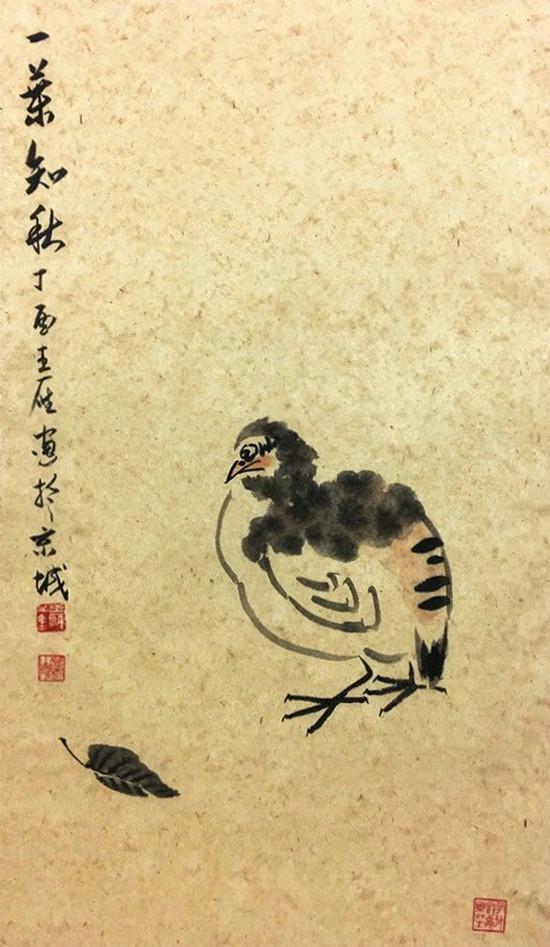 一葉知秋丁酉王雁画於京城